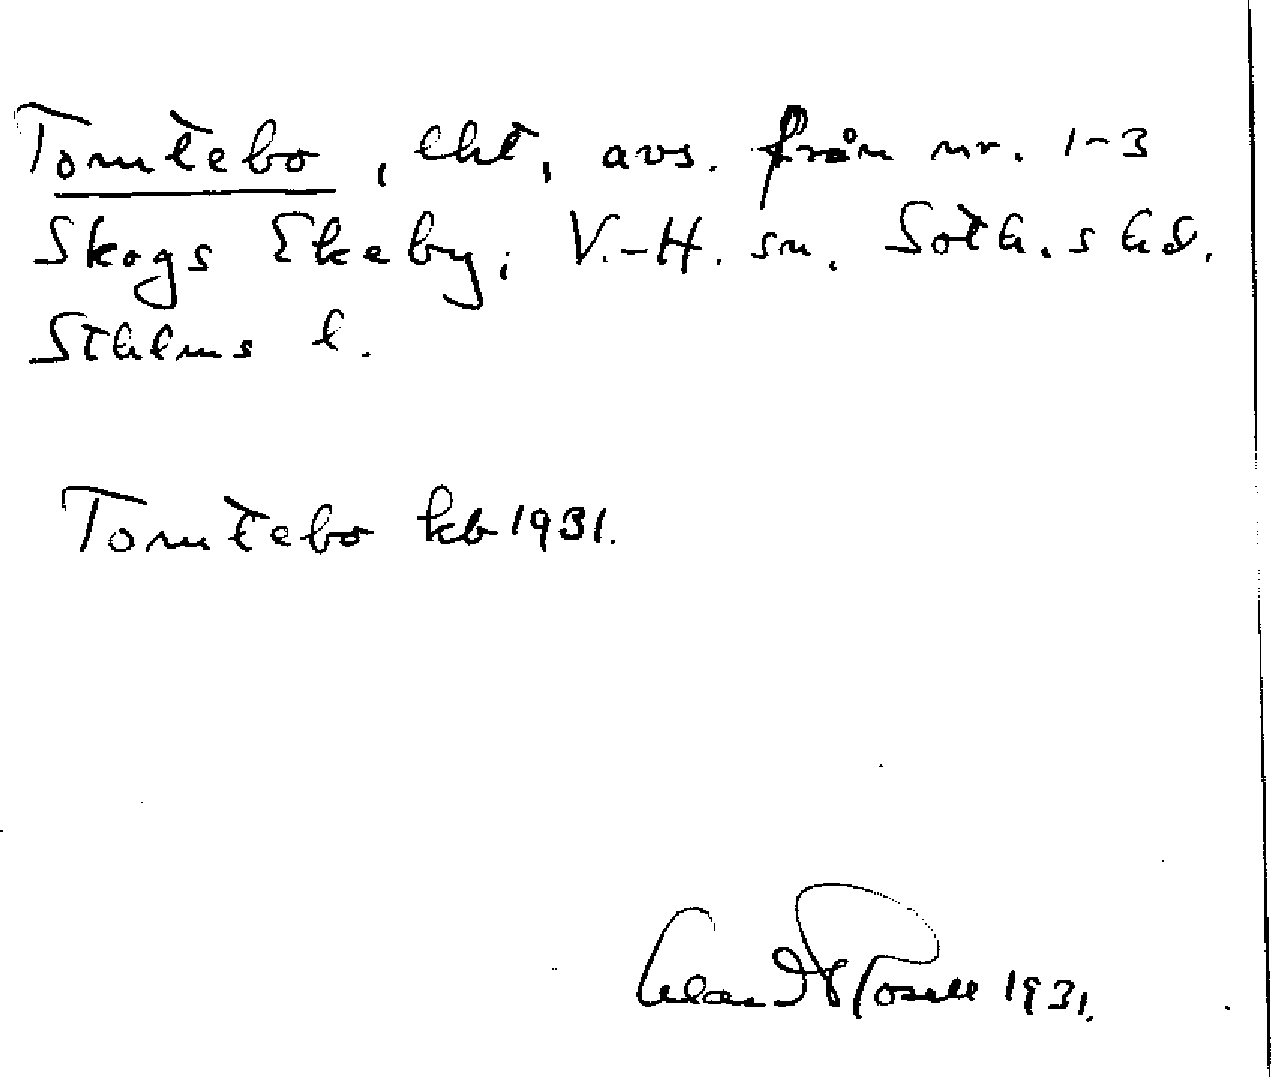 Tomtebo, lht, avs. från nr. 1-3
Skogs Ekeby, V.-H. sn. Soth.s hd.
Sthlms l.
Tomtebo kb 1931.
1931.